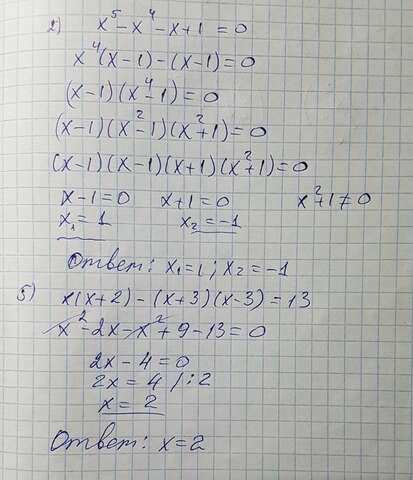 2) x⁵ - x⁴ - x + 1 = 0
x⁴(x - 1) - (x - 1) = 0
(x - 1)(x⁴ - 1) = 0
(x - 1)(x² - 1)(x² + 1) = 0
(x - 1)(x - 1)(x + 1)(x² + 1) = 0
x - 1 = 0 x + 1 = 0 x² + 1 ≠ 0
x₁ = 1 x₂ = -1
Ответ: x₁ = 1; x₂ = -1
5) x(x + 2) - (x + 3)(x - 3) = 13
x² - 2x - x² + 9 - 13 = 0
2x - 4 = 0
2x = 4 /: 2
x = 2
Ответ: x = 2